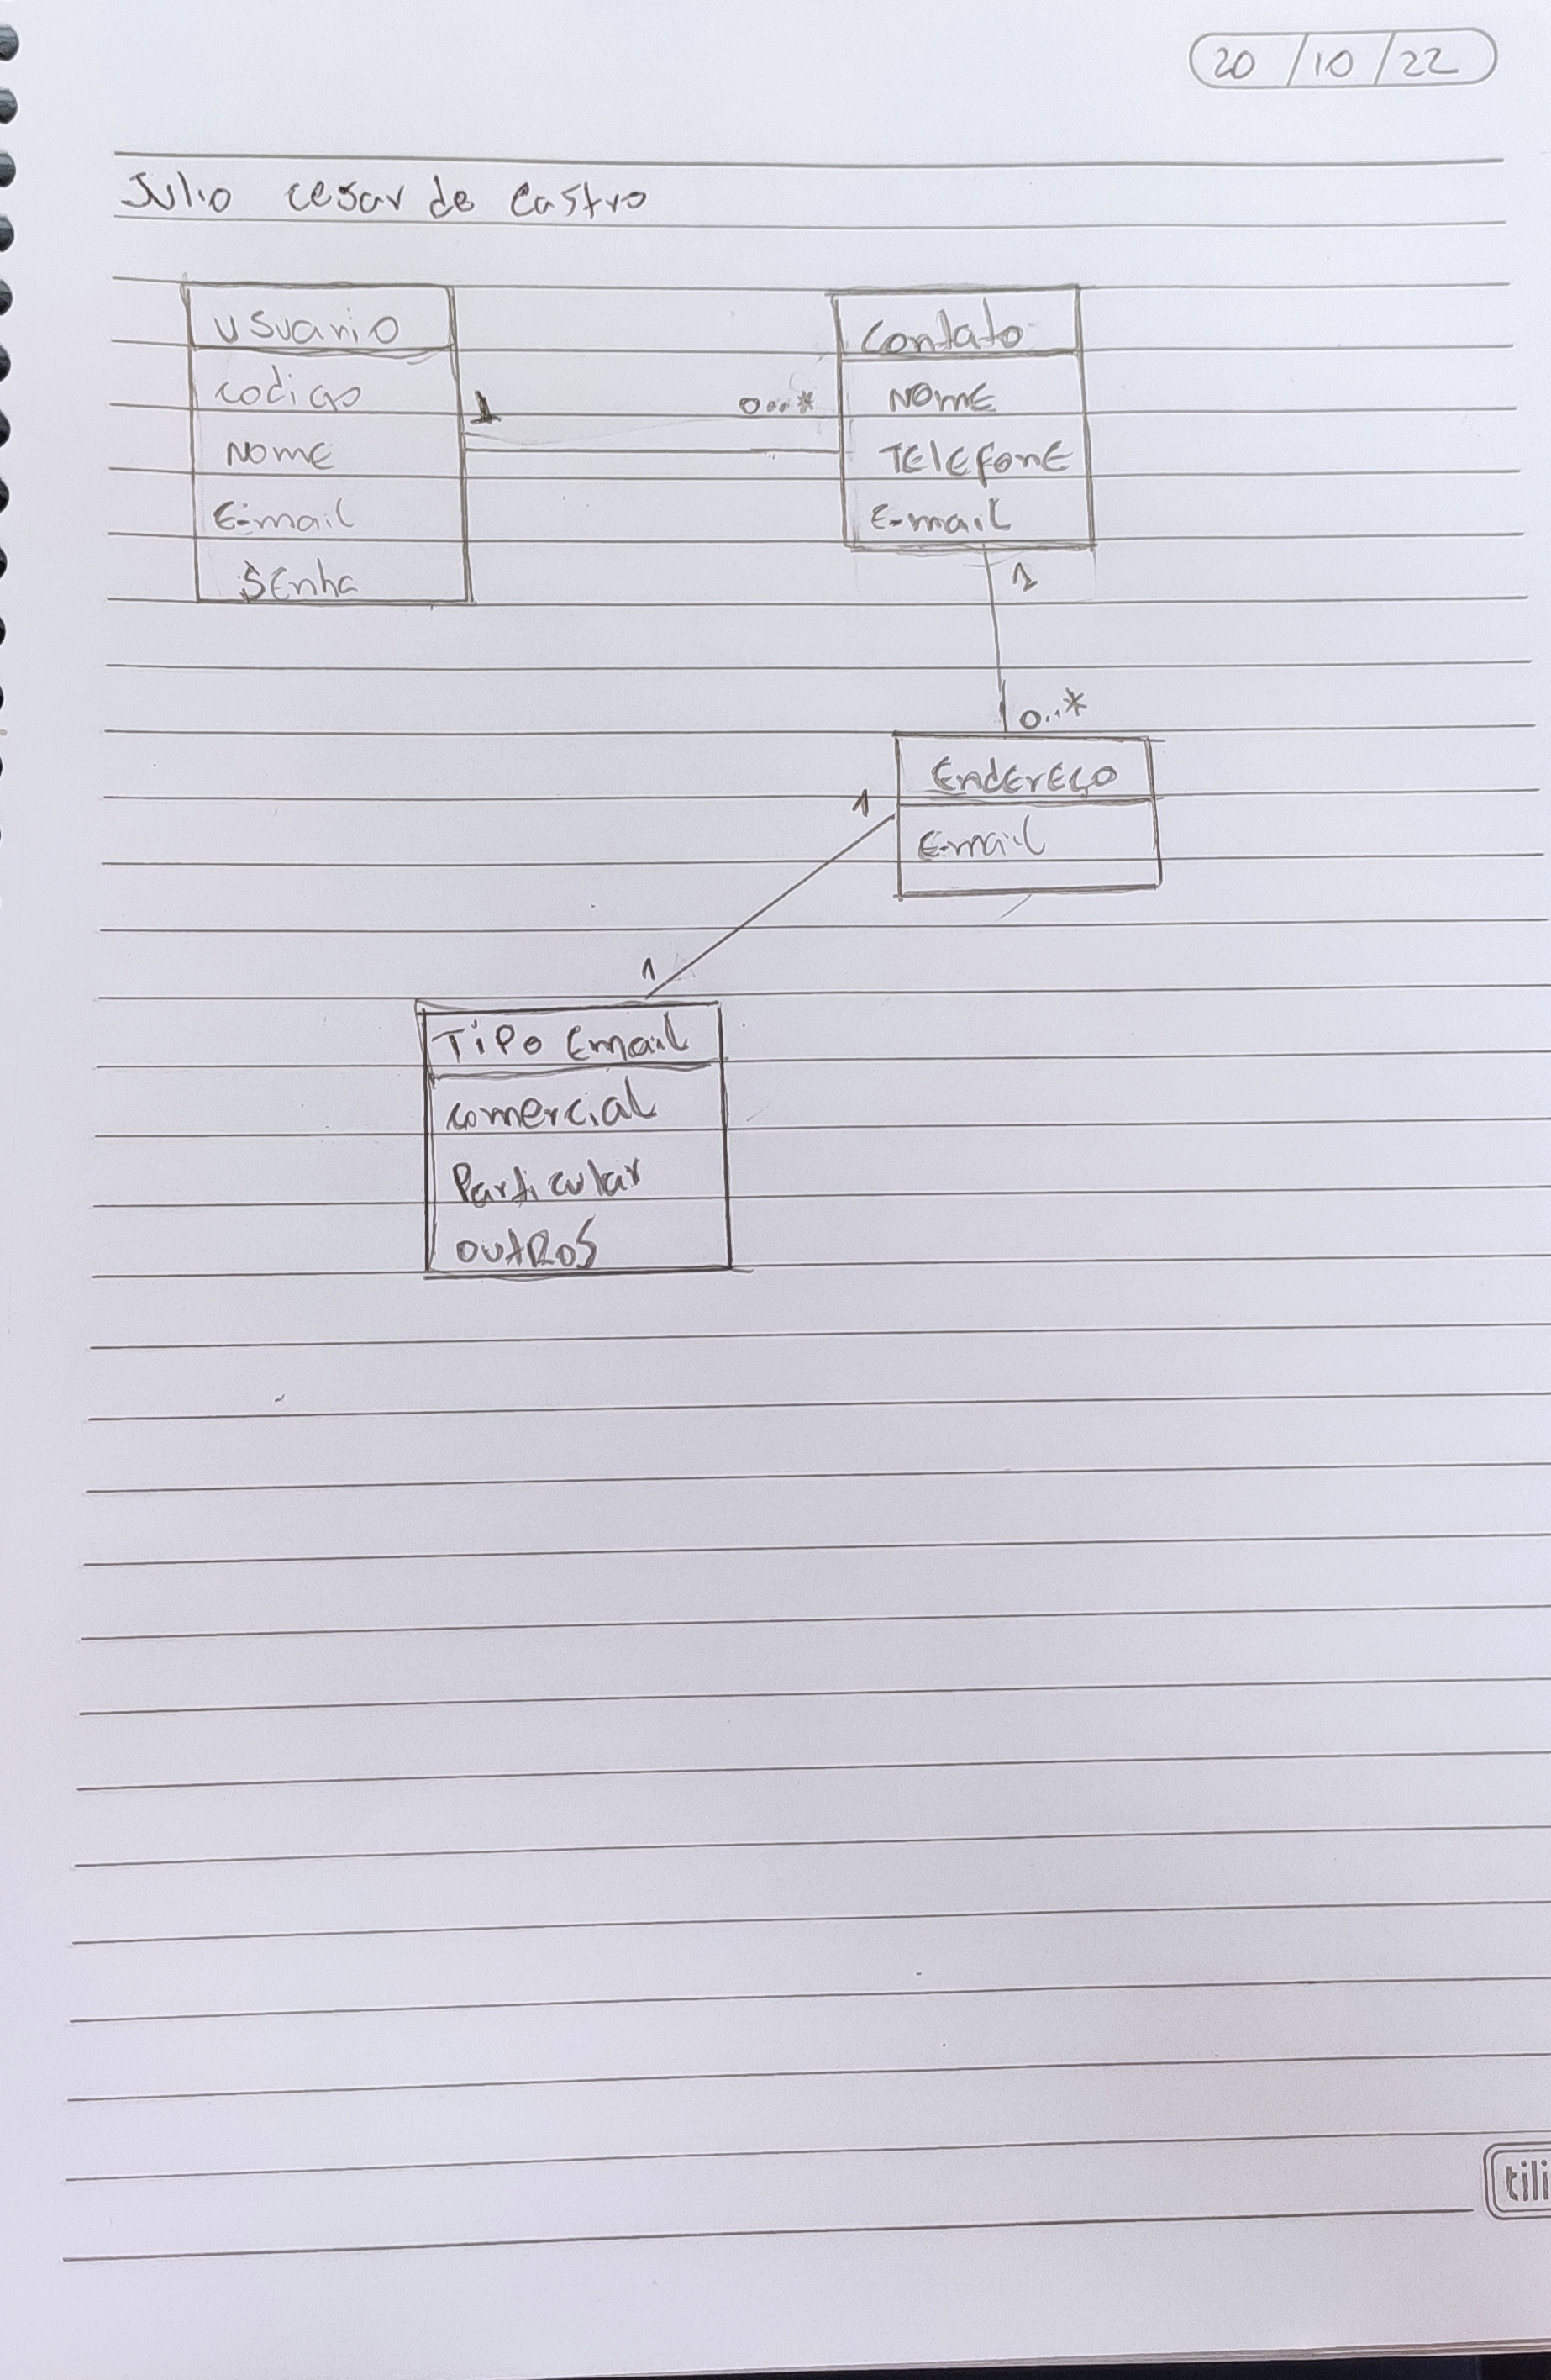 20 / 10 / 22
Julio cesar de castro
usuario
codigo
NOME
E-mail
SEnha
1
0...*
contato
NOME
TElEfonE
E-mail
1
0..*
EndErEço
E-mail
1
1
TiPo Email
comercial
Particular
OUtROS
tili